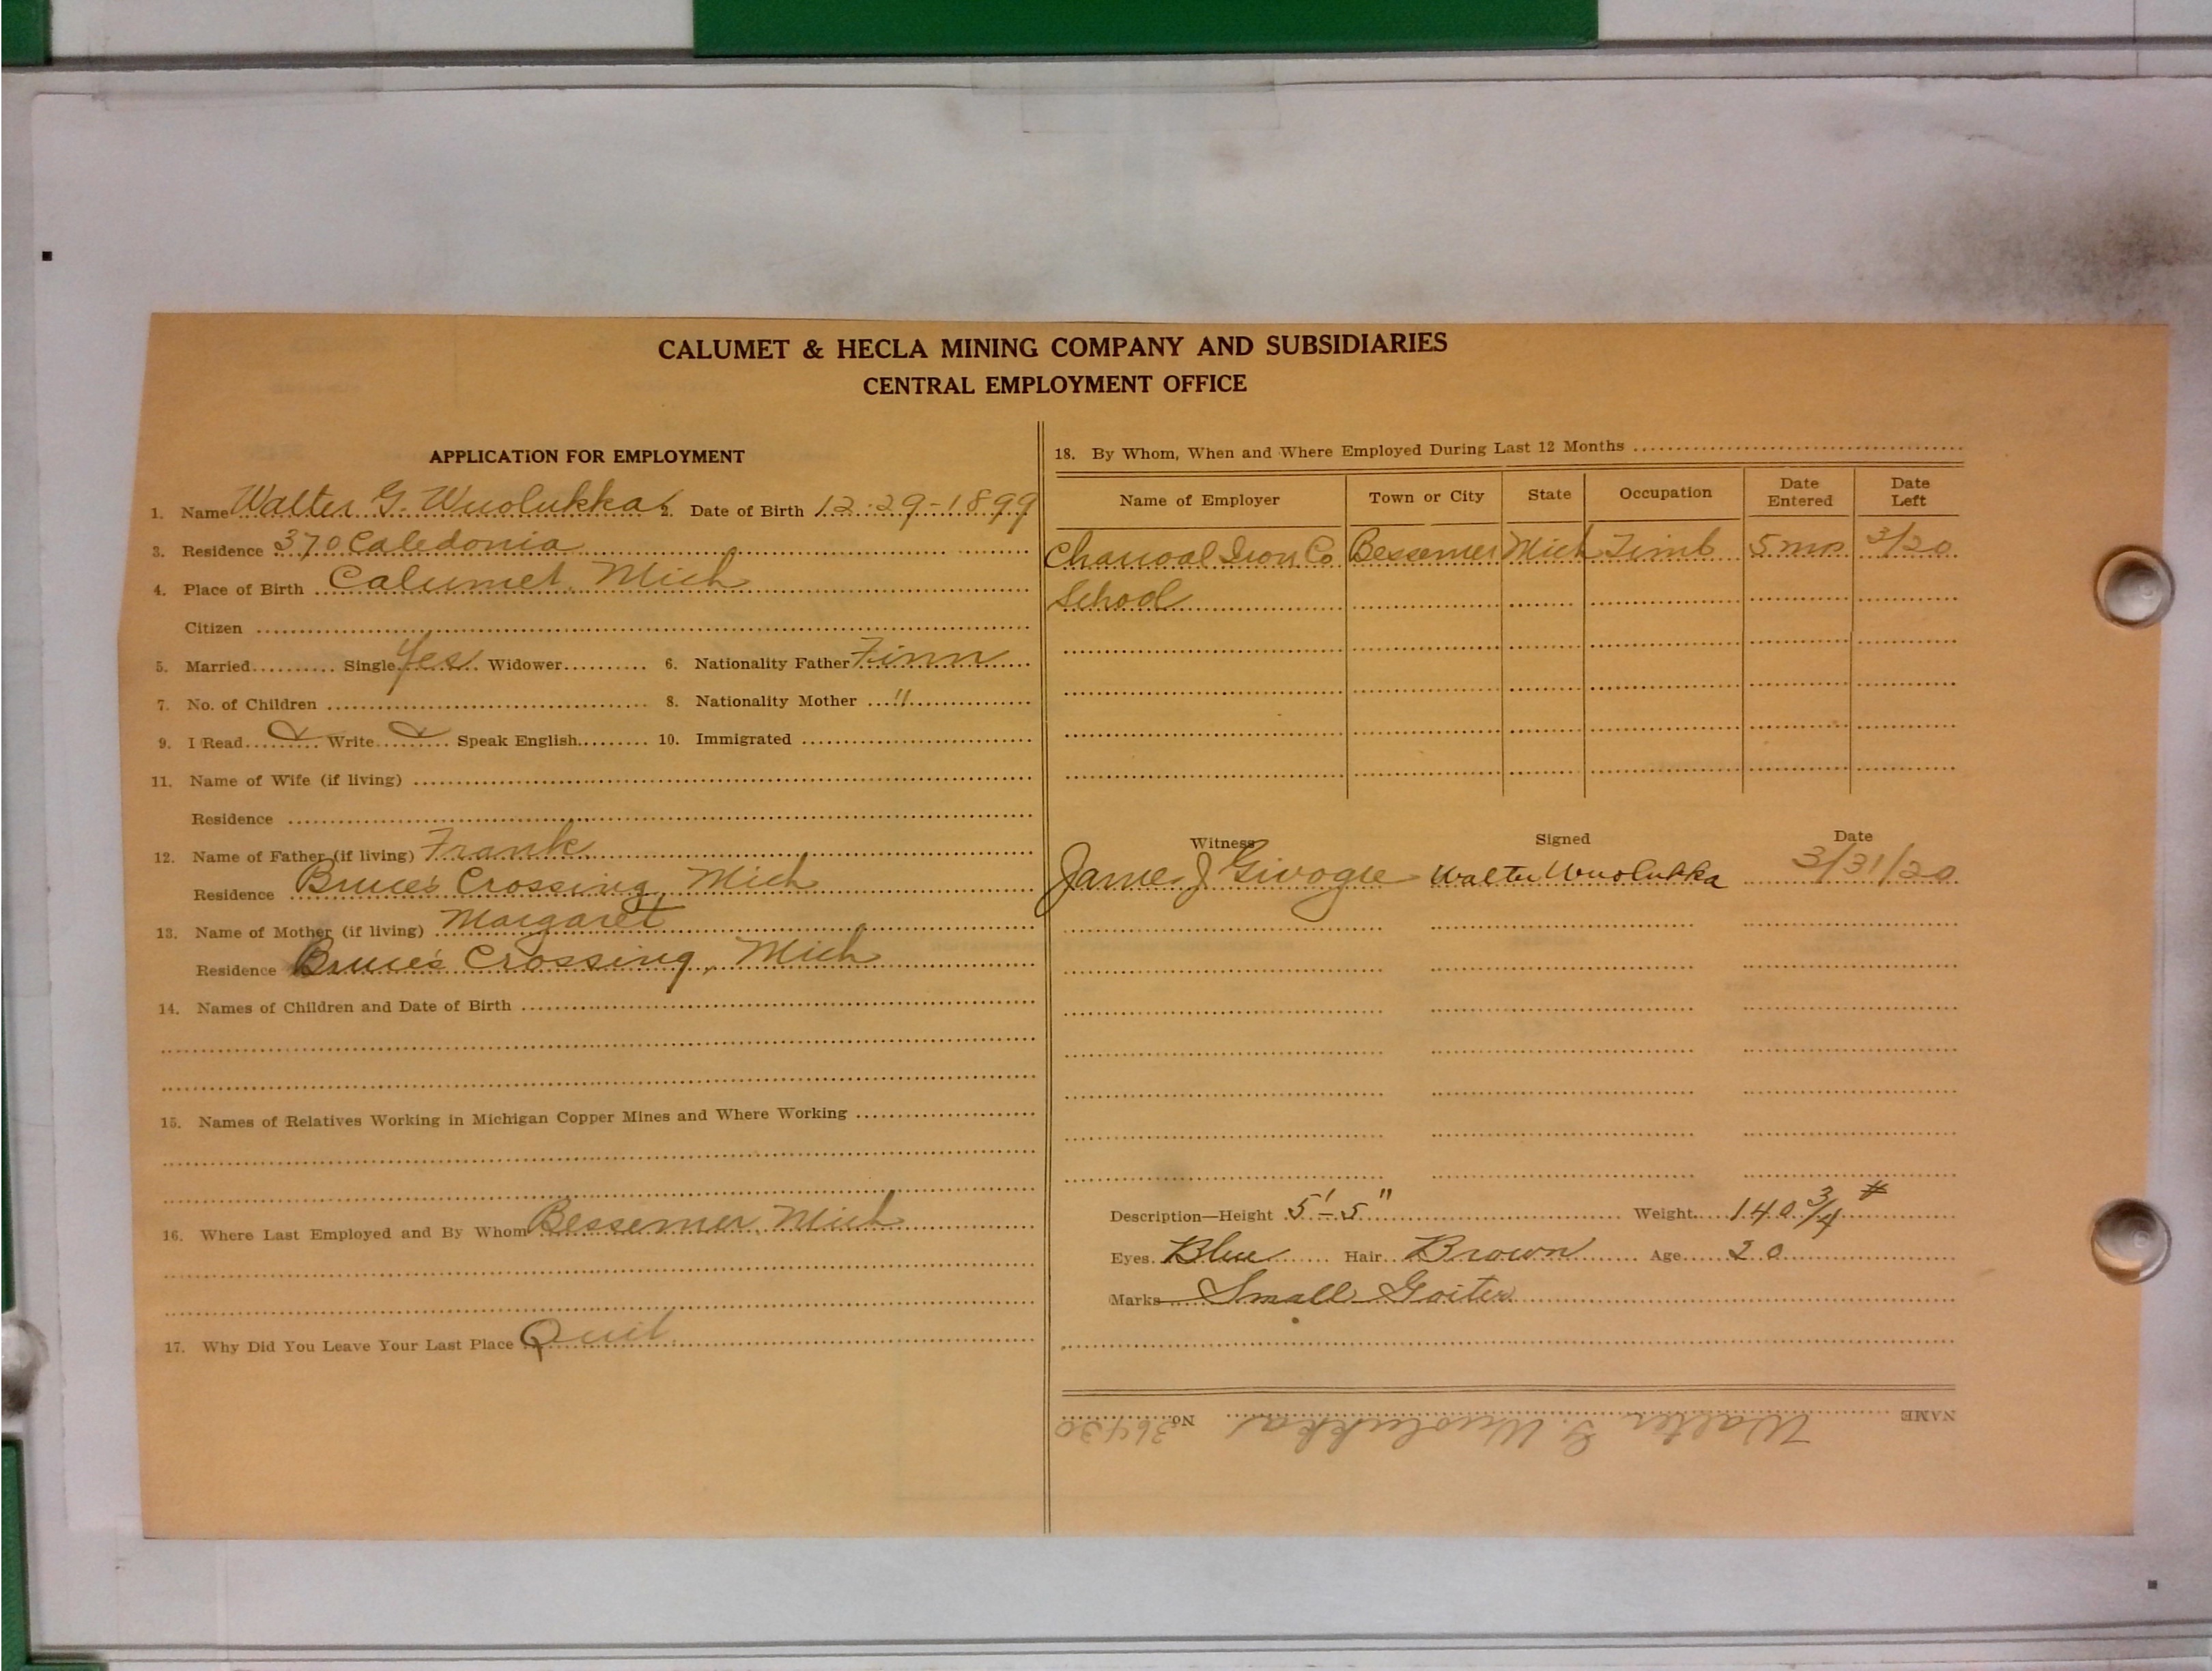 CALUMET & HECLA MINING COMPANY AND SUBSIDIARIES
CENTRAL EMPLOYMENT OFFICE
APPLICATION FOR EMPLOYMENT
1. Name Walter G. Wuolukka 2. Date of Birth 12-29-1899
3. Residence 370 Caledonia
4. Place of Birth Calumet, Mich
Citizen
5. Married Single Yes Widower 6. Nationality Father Finn
7. No. of Children 8. Nationality Mother "
9. I Read Write Speak English 10. Immigrated
11. Name of Wife (if living)
Residence
12. Name of Father (if living) Frank
Residence Bruce's Crossing, Mich
13. Name of Mother (if living) Margaret
Residence Bruce's Crossing, Mich
14. Names of Children and Date of Birth
15. Names of Relatives Working in Michigan Copper Mines and Where Working
16. Where Last Employed and By Whom Bessemer, Mich
17. Why Did You Leave Your Last Place Quit
18. By Whom, When and Where Employed During Last 12 Months
Name of Employer Town or City State Occupation Date Entered Date Left
Charcoal Iron Co Bessemer Mich Timb 5 mos 3/20
School
Witness Signed Date
James J Walter Wuolukka 3/31/20
Description—Height 5'-5" Weight 140 3/4 #
Eyes Blue Hair Brown Age 20
Marks Small Goiter
NAME Walter G. Wuolukka No. 36430